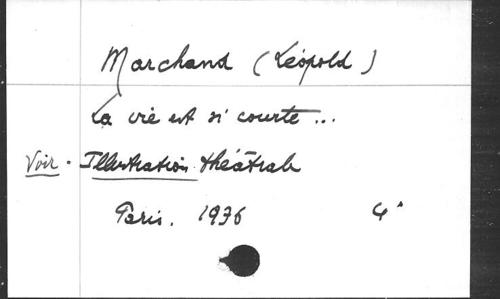 Marchand (Léopold)
La vie est si courte...
Voir. Illustration théâtrale
Paris. 1936 4°